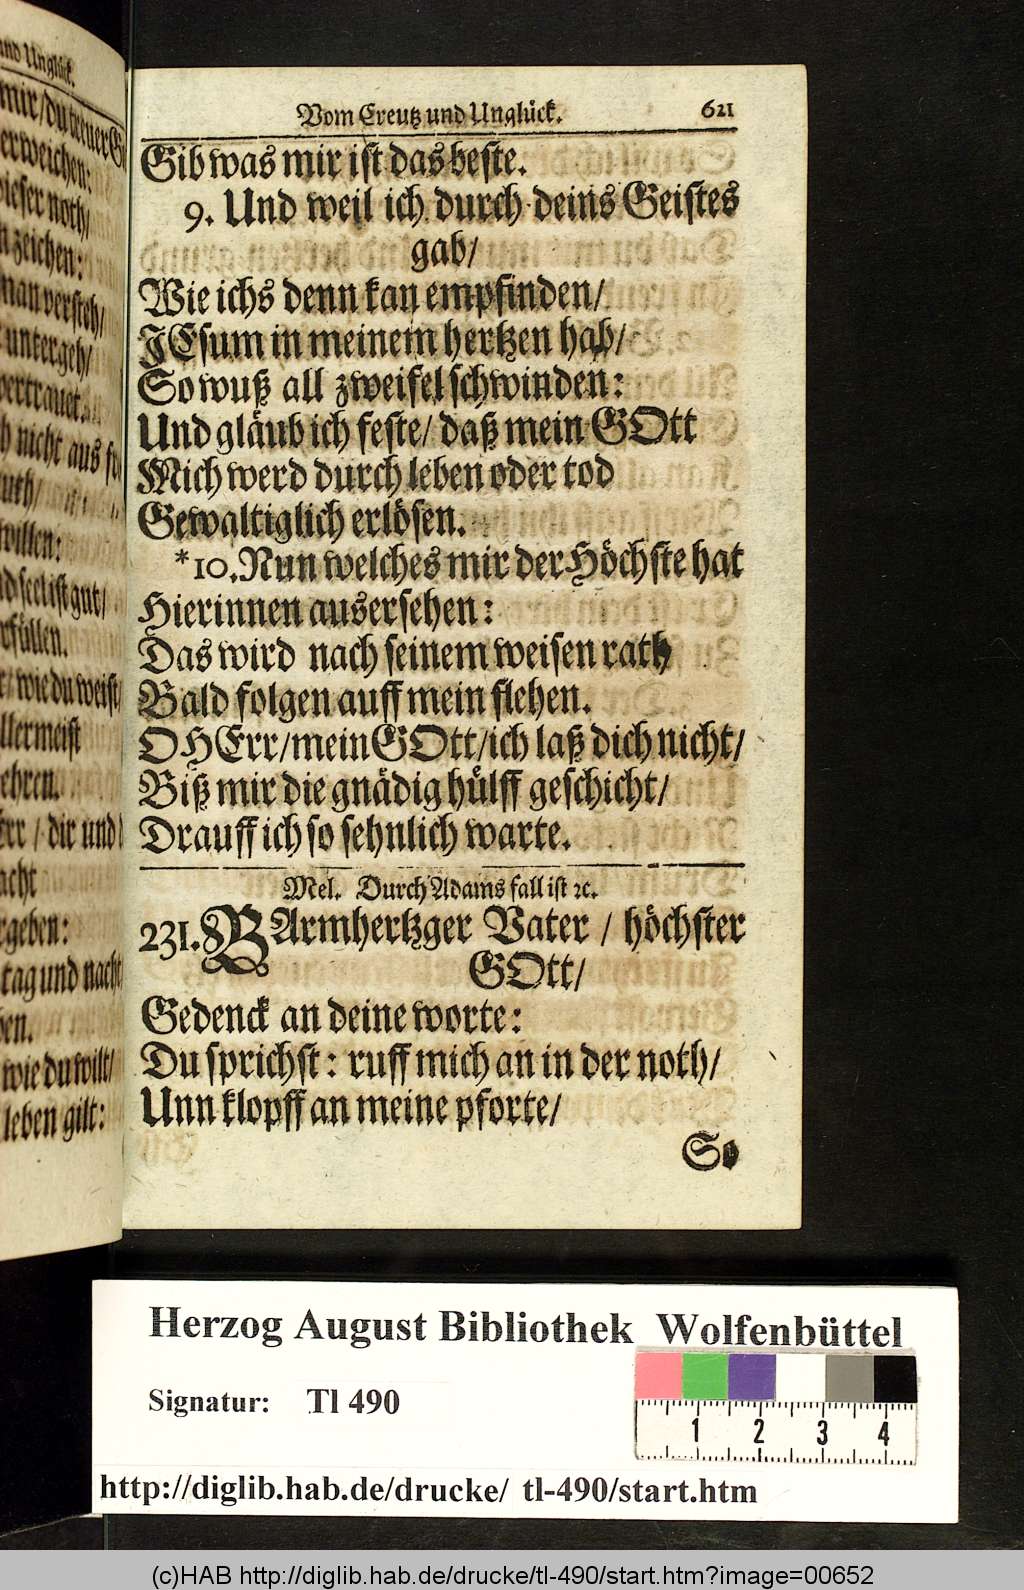 und Unglück.
mir/du treuer
erweichen:
dieser noth/
zeichen:
man versteh/
untergeh/
vertrauet
nicht aus
muth/
willen:
seel ist gut/
erfüllen.
wie du weist/
allermeist
ehren.
Err / dir und
acht
ergeben:
tag und nacht
ben.
wie du wilt/
leben gilt:
Vom Creutz und Unglück. 621
Gib was mir ist das beste.
9. Und weil ich durch deins Geistes
gab/
Wie ichs denn kan empfinden/
JEsum in meinem hertzen hab/
So wuß all zweifel schwinden:
Und gläub ich feste/ daß mein GOtt
Mich werd durch leben oder tod
Gewaltiglich erlösen.
*10. Nun welches mir der Höchste hat
Hierinnen ausersehen:
Das wird nach seinem weisen rath
Bald folgen auff mein flehen.
O HErr/mein GOtt/ich laß dich nicht/
Biß mir die gnädig hülff geschicht/
Drauff ich so sehnlich warte.
Mel. Durch Adams fall ist ꝛc.
231. BArmhertzger Vater / höchster
GOtt/
Gedenck an deine worte:
Du sprichst: ruff mich an in der noth/
Unn klopff an meine pforte/
So
Herzog August Bibliothek Wolfenbüttel
Signatur: Tl 490
1 2 3 4
http://diglib.hab.de/drucke/ tl-490/start.htm
(c)HAB http://diglib.hab.de/drucke/tl-490/start.htm?image=00652